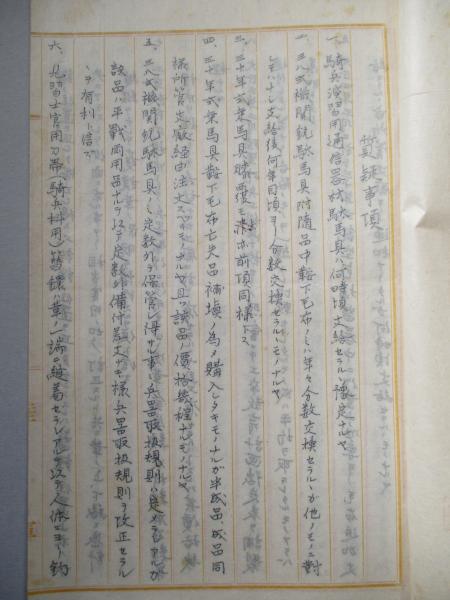 質疑事項
一、騎兵演習用通信器材駄馬具ハ何時頃支給セラルヽ豫定ナルヤ
二、三八式機関銃駄馬具附随品中鞍下毛布ノミハ年々分数交換セラルヽガ他ノモノニ對
シテハナシ支給後何年目頃ヨリ分数交換セラルヽモノナルヤ
三、三十年式乗馬具膝覆モ亦前項同様トス
四、三十年式乗馬具鞍下毛布亡失品補填ノ為メ購入シタキモノナルガ半成品、成品同
様所管支廠経由注文スベキモノナルヤ且ツ該品ノ價格幾程ナルモノナルヤ
五、三八式機関銃駄馬具ノミ定数外ヲ保管シ得サル事ニ兵器取扱規則ニ定メラレアルガ
該品ハ平戦両用品ナルヲ以テ定数外備付差支ナキ様兵器取扱規則ヲ改正セラル
ヽヲ有利ト信ズ
六、見習士官用刀帯(騎兵科用)ノ鐶ハ革ノ一端ニ縫着セラレアルヲ以テ人体ニヨリ鈎